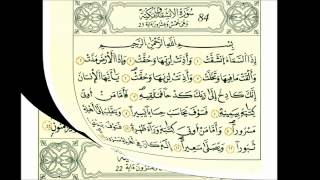 سُورَةُ الانشِقَاقِ مَكِّيَّة 84
بِسْمِ اللَّهِ الرَّحْمَٰنِ الرَّحِيمِ
إِذَا السَّمَاءُ انشَقَّتْ ١ وَأَذِنَتْ لِرَبِّهَا وَحُقَّتْ ٢ وَإِذَا الْأَرْضُ مُدَّتْ ٣
وَأَلْقَتْ مَا فِيهَا وَتَخَلَّتْ ٤ وَأَذِنَتْ لِرَبِّهَا وَحُقَّتْ ٥ يَا أَيُّهَا الْإِنسَانُ
إِنَّكَ كَادِحٌ إِلَىٰ رَبِّكَ كَدْحًا فَمُلَاقِيهِ ٦ فَأَمَّا مَنْ أُوتِيَ
كِتَابَهُ بِيَمِينِهِ ٧ فَسَوْفَ يُحَاسَبُ حِسَابًا يَسِيرًا ٨
مَسْرُورًا ٩ وَأَمَّا مَنْ أُوتِيَ كِتَابَهُ وَرَاءَ ظَهْرِهِ ١٠
ثُبُورًا ١١ وَيَصْلَىٰ سَعِيرًا ١٢ إِنَّهُ كَانَ فِي
22